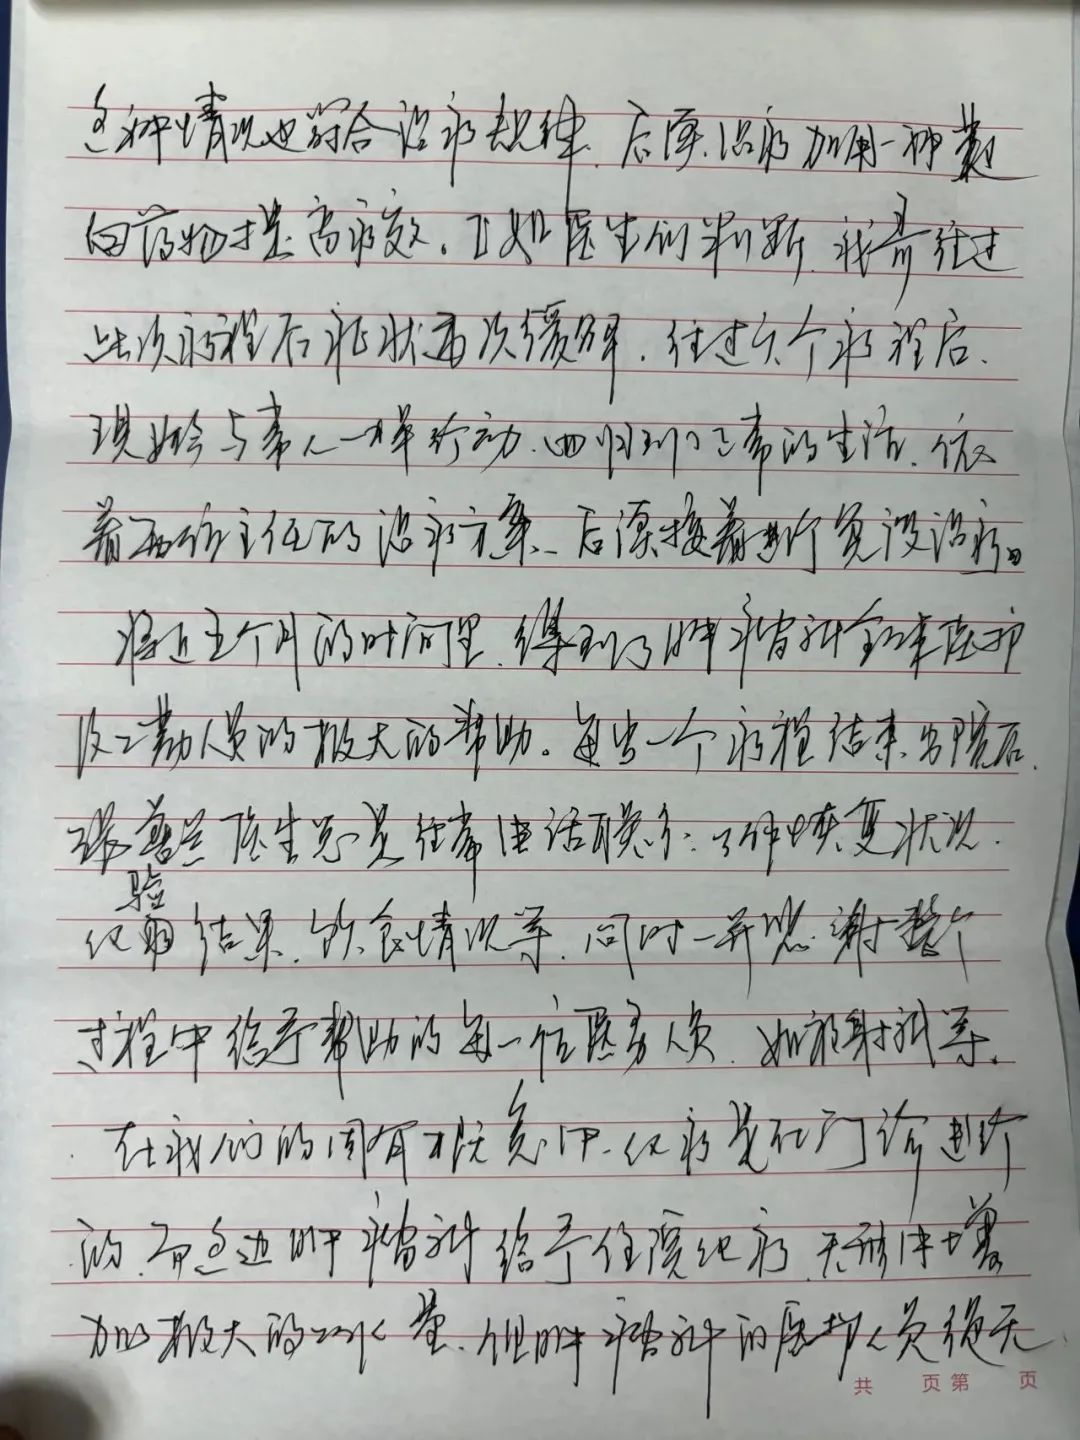 这种情况也符合治疗规律.后续治疗加用一种靶
向药物提高疗效。正如医生们判断,我哥经过
此次疗程后症状再次缓解.经过六个疗程后.
现如今与常人一样行动.回归到正常的生活.
着 主任的治疗方案.后续接着进行免疫治疗。
将近五个月的时间里.得到了肿瘤科全体医护
及工勤人员的极大的帮助。每当一个疗程结束出院后.
张 医生总是经常电话联系:了解恢复状况.
验
化 结果.饮食情况等.同时一并感谢整个
过程中给予帮助的每一位医务人员.如放射科等.
在我们的固有概念中.化疗是在门诊进行
的.而这边肿瘤科给予住院化疗.无形中增
加极大的工作量.但肿瘤科的医护人员绝无
共 页 第 页